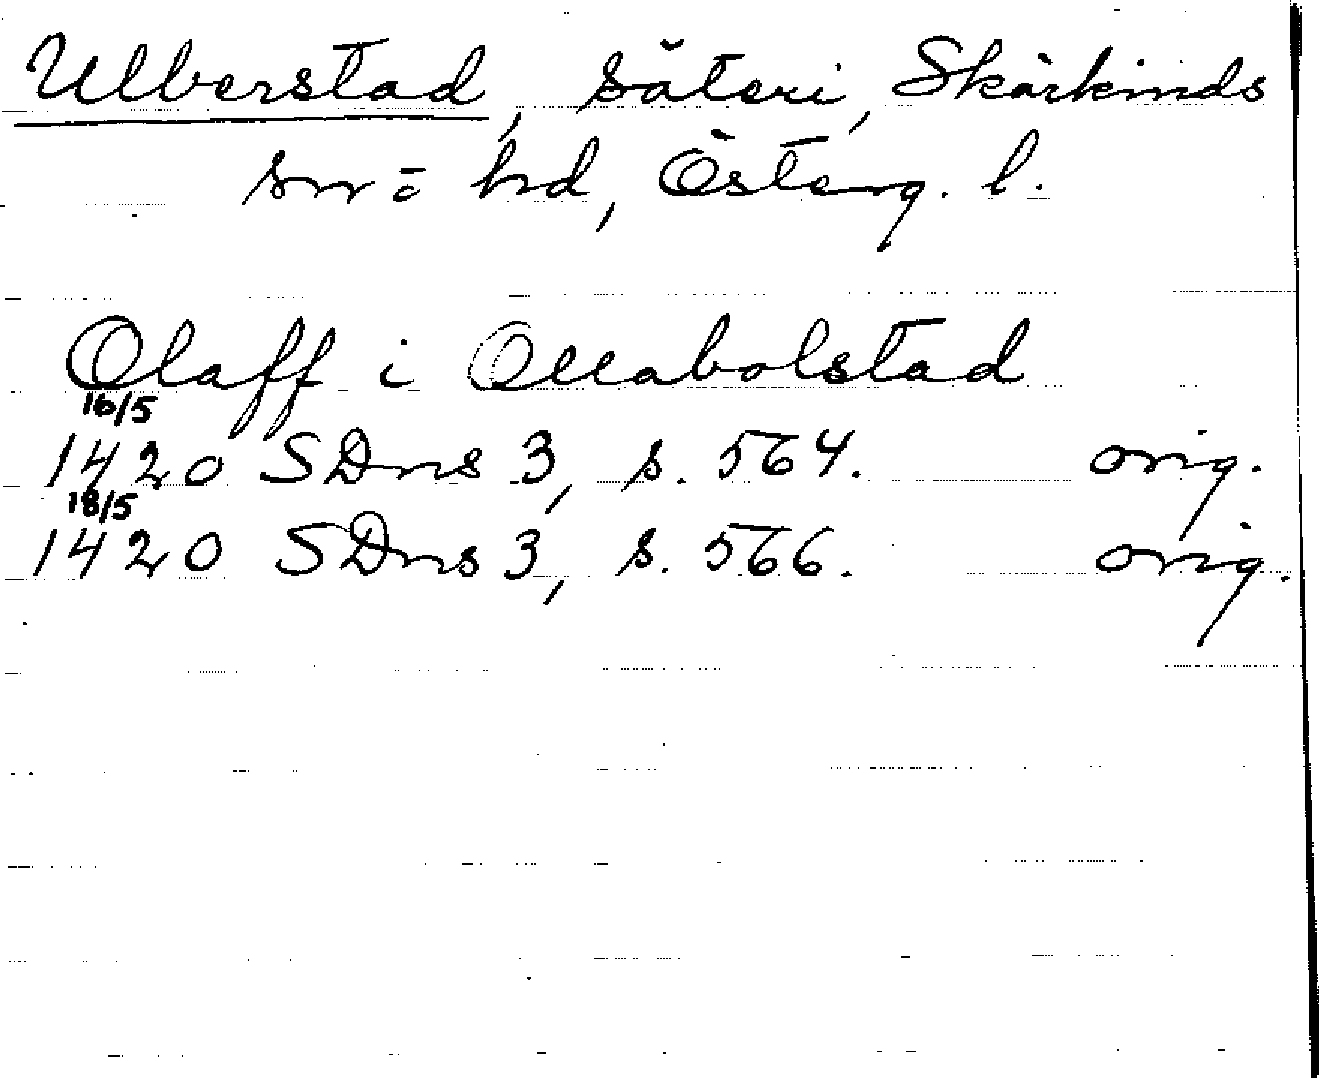 Ulberstad, säteri, Skärkinds
sn o hd, Österg. l.
Olaff i Ollabolstad
16/5
1420 SDns 3, s. 564. orig.
18/5
1420 SDns 3, s. 566. orig.